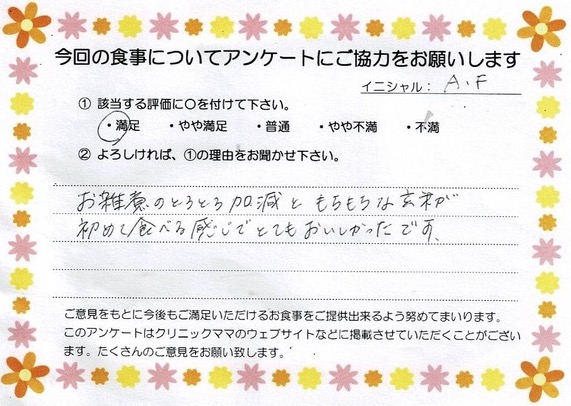 今回の食事についてアンケートにご協力をお願いします
イニシャル： A.F
① 該当する評価に〇を付けて下さい。
・満足 ・やや満足 ・普通 ・やや不満 ・不満
② よろしければ、①の理由をお聞かせ下さい。
お雑煮のとろとろ加減ともちもちな玄米が
初めて食べる感じでとてもおいしかったです。
ご意見をもとに今後もご満足いただけるお食事をご提供出来るよう努めてまいります。
このアンケートはクリニックママのウェブサイトなどに掲載させていただくことがござい
ます。たくさんのご意見をお願い致します。